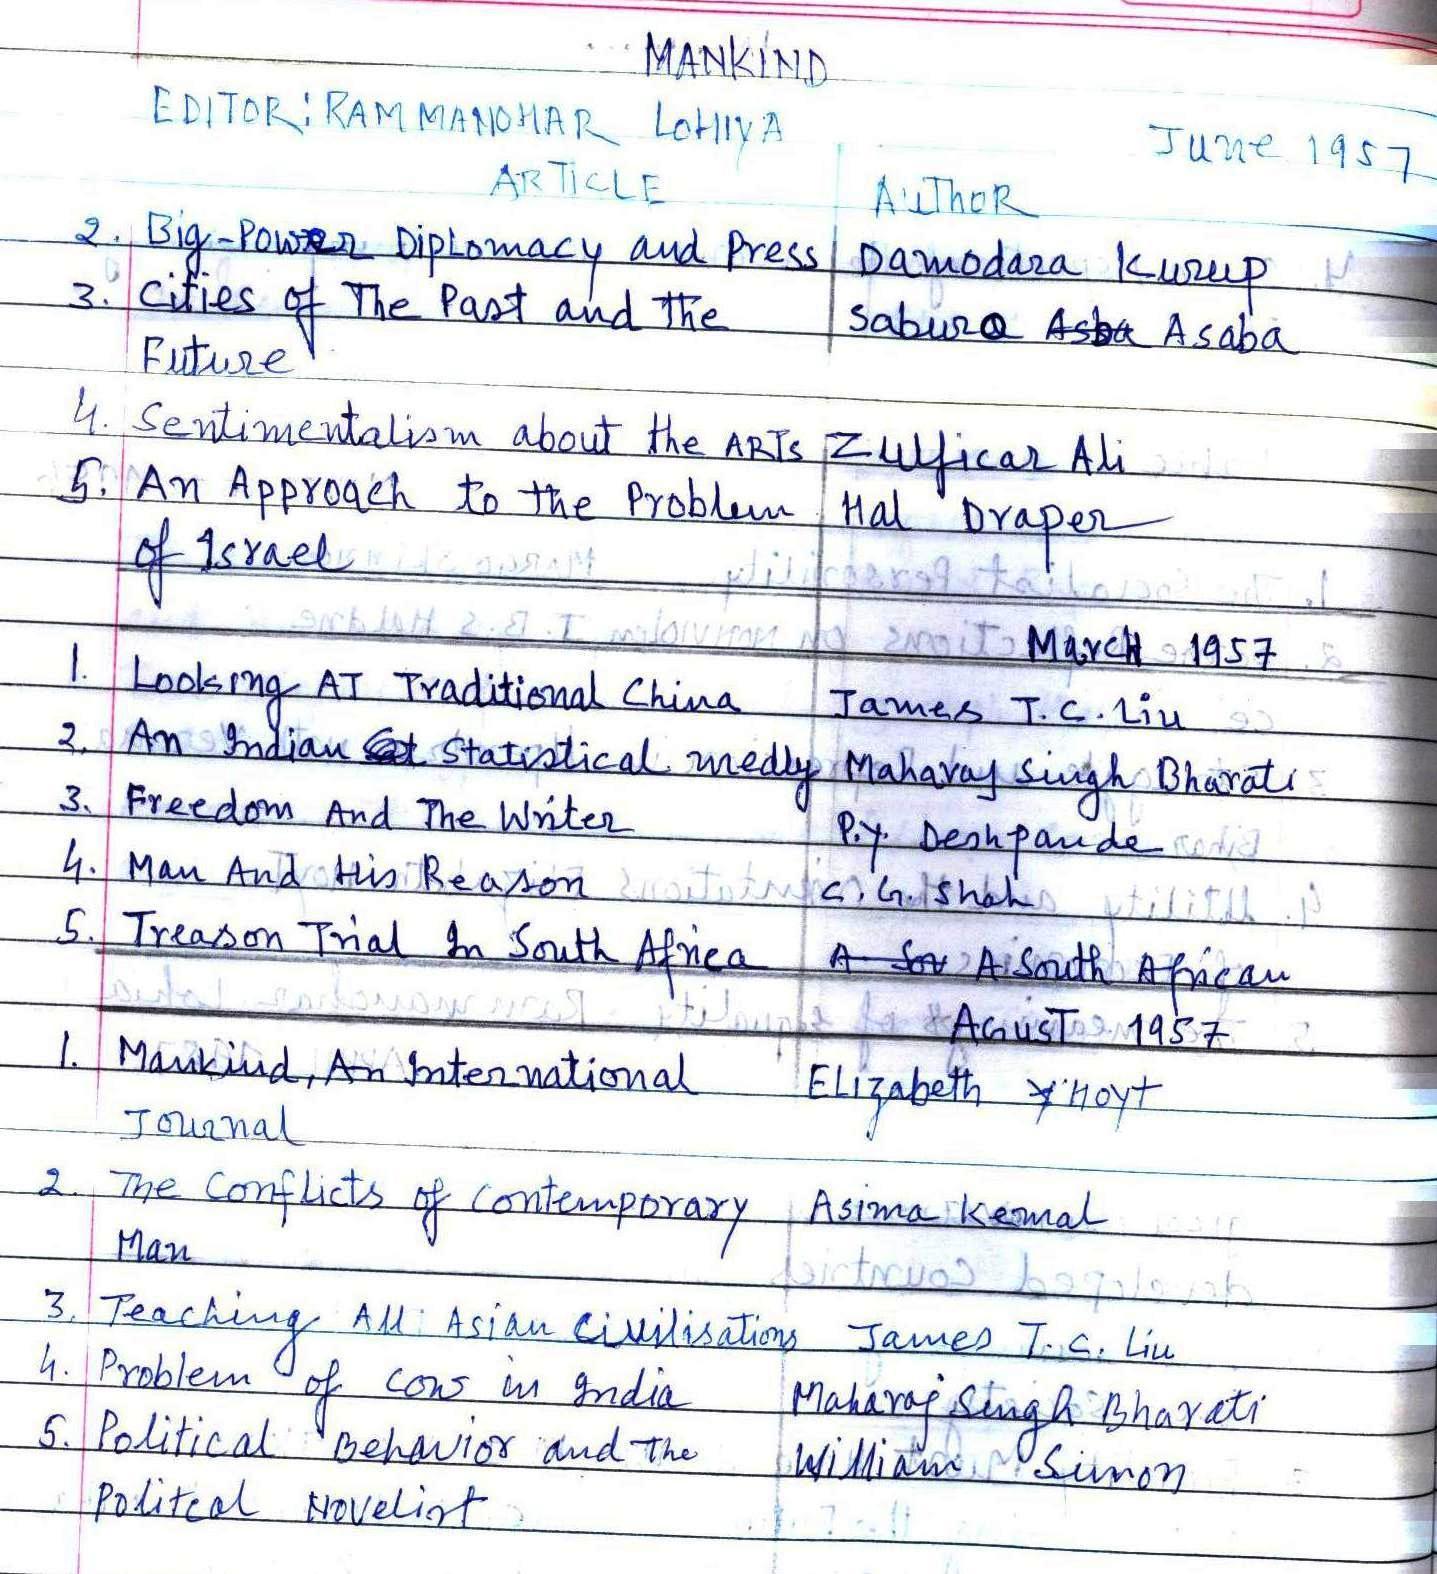 MANKIND
EDITOR: RAM MANOHAR LOHIYA
June 1957
ARTICLE AUTHOR
2. Big-Power Diplomacy and Press Damodara Kurup
3. Cities of The Past and The Saburo Asba Asaba
Future
4. Sentimentalism about the ARTs Zulficar Ali
5. An Approach to the Problem Hal Draper
of Israel
March 1957
1. Looking AT Traditional China James T.C. Liu
2. An Indian St Statistical medly Maharaj Singh Bharati
3. Freedom And The Writer P.Y. Deshpande
4. Man And His Reason C.G. Shah
5. Treason Trial In South Africa A Sou A South African
AGUST 1957
1. Mankind, An International ELizabeth Hoyt
Journal
2. The Conflicts of Contemporary Asima Kemal
Man
3. Teaching All Asian Civilisations James T.C. Liu
4. Problem of Cows in India Maharaj Singh Bharati
5. Political Behavior and The William Simon
Politcal Novelist